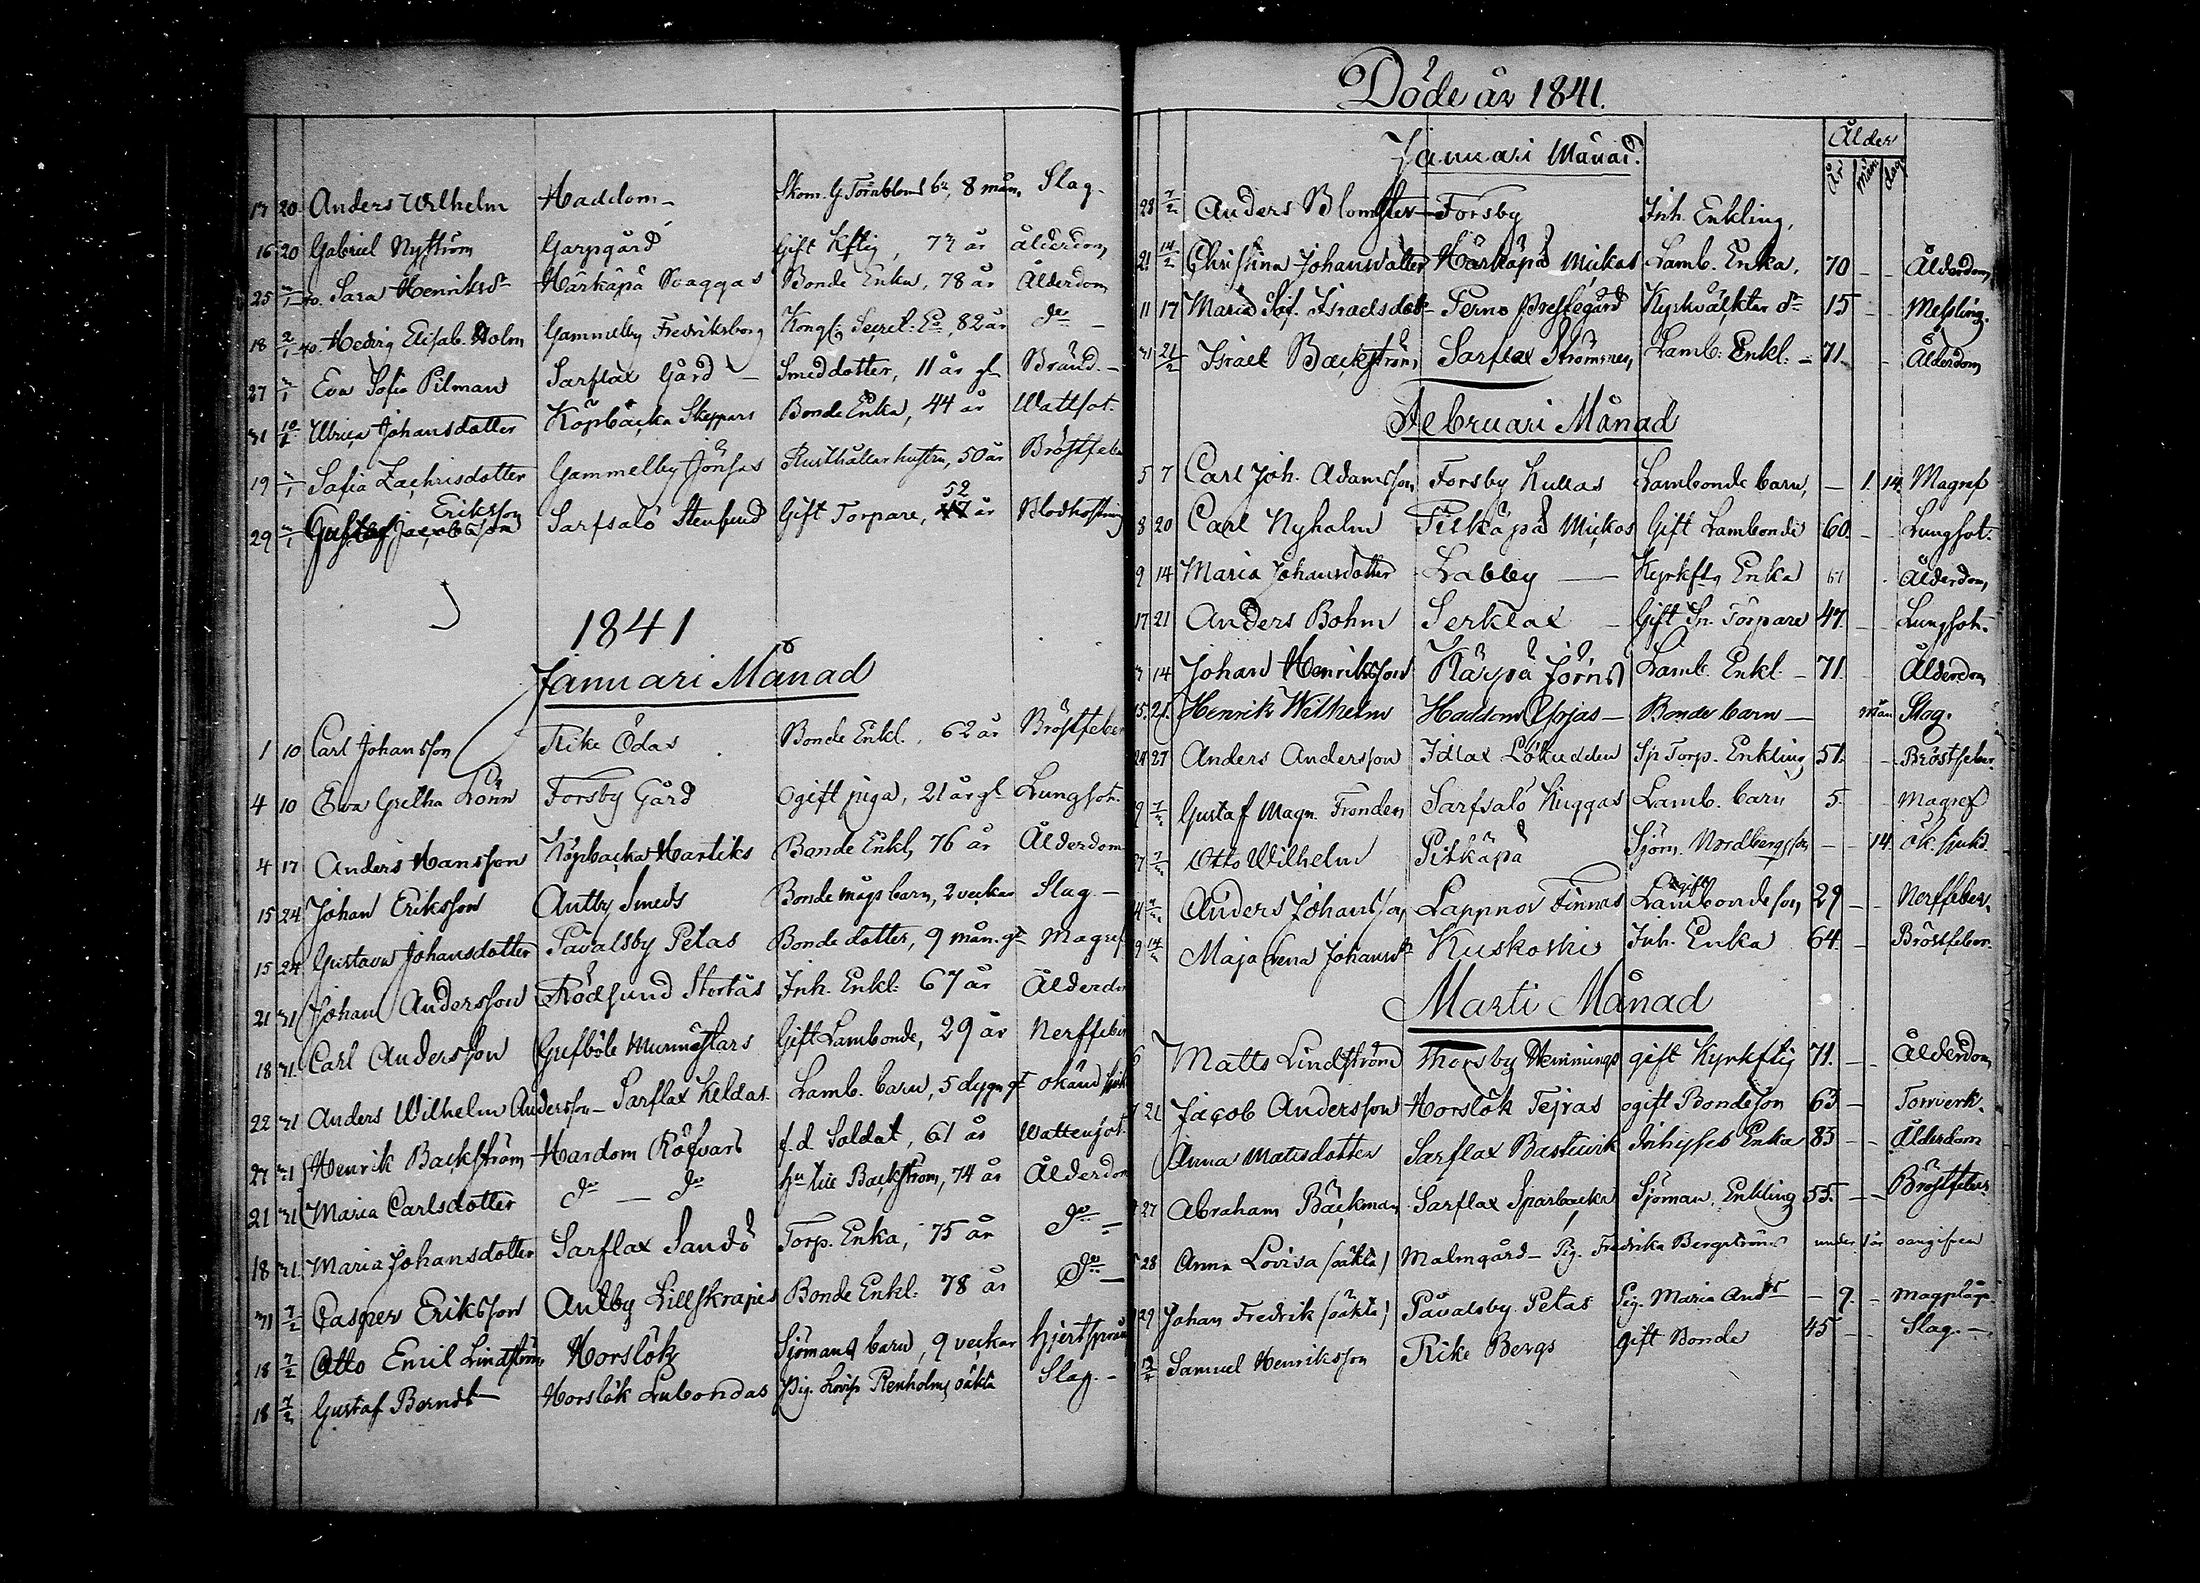 17 20 Anders Wilhelm Haddom Skom. G. Törnbloms bn, 8 mån. Slag.
16 20 Gabriel Nyström Garpgård Gift Kftig, 77 år Ålderdom
25 Sara Henriksdr Härkäpä Skaggas Bonde Enka, 78 år Ålderdom
18 Hedvig Elisab. Holm Gammelby Fredriksborg Kongl. Secret: Ea, 82 år do
27 Eva Sofia Pilman Sarflax Gård Smeddotter, 11 år gl Bränd.
31 10/1 Ulrica Johansdotter Köpbacka Skeppars Bonde Enka, 44 år Wattsot.
19 Safia Zachrisdotter Gammelby Jönsas Rusthållarhustru, 50 år Bröstfeber
29 Gustaf Eriksson Sarfsalö Stensund Gift Torpare, 52 år Blodhostning
1841
Januari Månad
1 10 Carl Johansson Rike Ödas Bonde Enkl. 62 år Bröstfeber
4 10 Eva Gretha Lönn Forsby Gård Ogift piga, 21 år gl Lungsot.
4 17 Anders Hansson Köpbacka Hartiks Bonde Enkl, 76 år Ålderdom
15 24 Johan Eriksson Antby Smeds Bonde mågs barn, 2 veckor Slag.
15 24 Gustava Johansdotter Påvalsby Petas Bonde dotter, 9 mån. gl Magref
21 31 Johan Andersson Rödsund Stortäs Inh. Enkl: 67 år Ålderdo
18 31 Carl Andersson Gislböle Murmästars Gift Lambonde, 29 år Nerffeber
22 31 Anders Wilhelm Andersson Sarflax Keldas. Lamb. barn, 5 dygn gl okänd sjuk
27 31 Henrik Backström Hardom Röfvars f.d. Soldat, 61 år Wattensot.
21 31 Maria Carlsdotter do do Backström, 74 år Ålderdom
18 31 Maria Johansdotter Sarflax Sandö Torp. Enka, 75 år do
31 7/2 Casper Eriksson Antby Lillskrapis Bonde Enkl: 78 år do
18 7/2 Otto Emil Lindström Horslök Sjömans barn, 9 veckor hjertsprån
18 7/2 Gustaf Berndt Horslök Lubondas Pig. Lovis Renholms oäkta Slag.
Döde år 1841.
Januari Månad. Ålder
År Mån dag
28 7/2 Anders Blomster Forsby Inh. Enkling,
21 14/2 Christina Johanwalter Härkäpä Mickas Lamb. Enka, 70 Ålderdom,
11 17 Maria Sof. Israelsdotr Perno Prestegård Kyrkväktar dr 15 Messling.
31 21/2 Israel Backström Sarflax Strömsnes Lamb: Enkl. 71 Ålderdom
Februari Månad
5 7 Carl Joh. Adamsson Forsby Kullas Lambonde barn, 1 14 Magref
8 20 Carl Nyholm Pitkäpä Mickos Gift Lambonde 60 Lungsot.
9 14 Maria Johansdotter Labby Kyrkftg Enka 67 Ålderdom,
17 21 Anders Bohm Serklax Gift Sp. Torpare 47 Lungsot.
3 14 Johan Henriksson Kärpä Jörns Lamb. Enkl. 71 Ålderdom
15 21 Henrik Wilhelm Haddom Yrjas Bonde barn 3 mån Slag.
24 27 Anders Andersson Idlax Lökudden Sp. Torp. Enkling 51 Bröstfeber.
9 7/2 Gustaf Magn. Frondén Sarfsalö Kuggas Lamb. barn 5 Magref
7 7/2 Otto Wilhelm Pitkäpä Sjöm. Nordbergsson 14 Ok. sjukd.
4 7/2 Anders Johansson Lappnor Finnas ogift Lambondeson 29 Nerffeber.
9 14/2 Maja Lena Johansdr Kuskoski Inh. Enka 64 Bröstfeber.
Marti Månad
6 Matts Lindström Thorsby Hemmings gift Kyrkftig 71 Ålderdom
21 Jacob Andersson Horslök Tejras ogift Bondeson 63 Torrverk.
Anna Matsdotter Sarflax Bastuvik Inhyses Enka 83 Ålderdom
27 Abraham Bäckman Sarflax Sparbacka Sjöman. Enkling 55 Bröstfeber.
28 Anna Lovisa (oäkta) Malmgård Pig. Fredrika Bergström under 1 år oangifven
29 Johan Fredrik (oäkta) Påvalsby Petas Pig. Maria Andsdr 9 magplåga
Samuel Henriksson Rike Bergs gift Bonde 45 Slag.